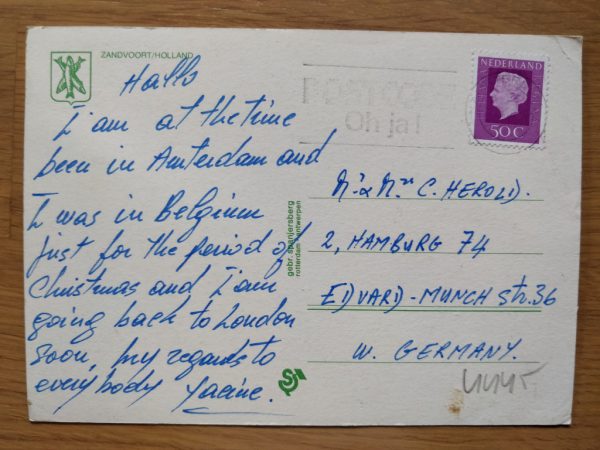 ZANDVOORT/HOLLAND
Hallo
I am at the time
been in Amterdam and
I was in Belgium
just for the period of
Christmas and I am
going back to London
soon, my regards to
everybody Yacine.
gebr. spanjersberg
rotterdam antwerpen
POSTCODE
Oh ja!
NEDERLAND
50C
Mr & Mrs C. HEROLD.
2, HAMBURG 74
EDVARD-MUNCH Str. 36
W. GERMANY.